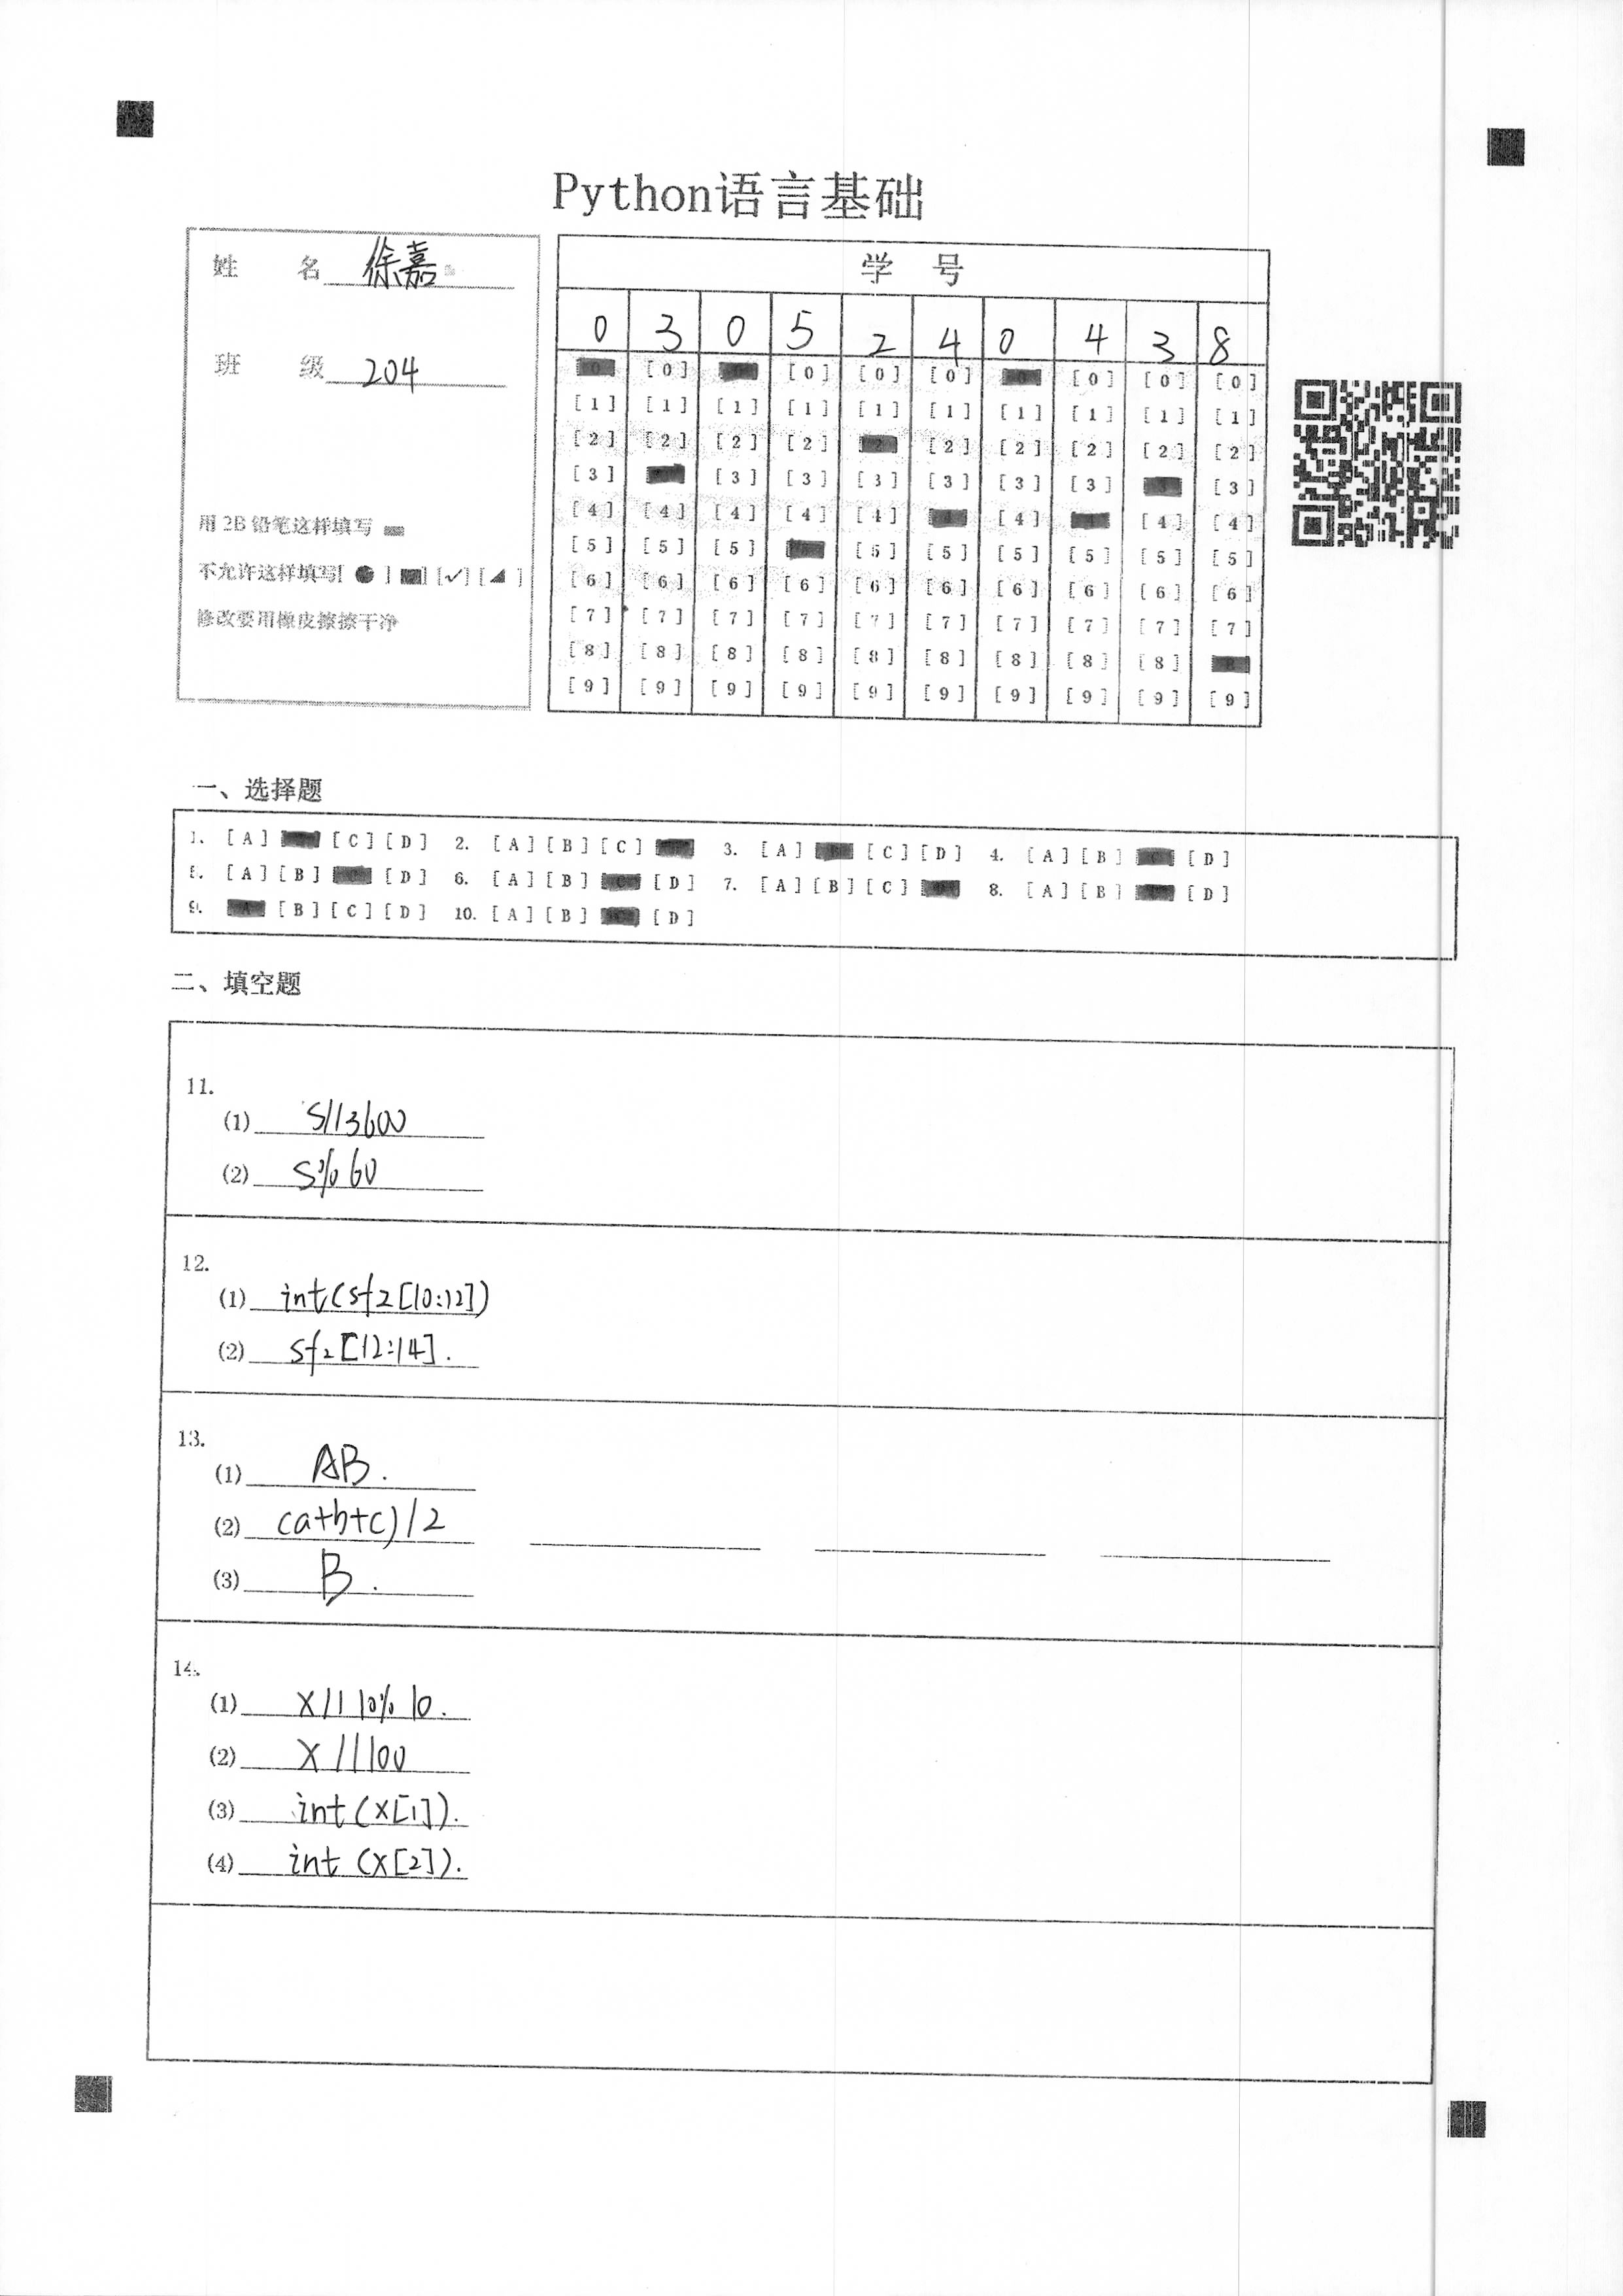 Python语言基础
姓 名 徐嘉
班 级 204
用 2B 铅笔这样填写
不允许这样填写[ ● ] [■] [✓] [◢ ]
修改要用橡皮擦擦干净
学 号
0 3 0 5 2 4 0 4 3 8
[0] [0] [0] [0] [0] [0] [0]
[1] [1] [1] [1] [1] [1] [1] [1] [1] [1]
[2] [2] [2] [2] [2] [2] [2] [2] [2] [2]
[3] [3] [3] [3] [3] [3] [3] [3]
[4] [4] [4] [4] [4] [4] [4] [4]
[5] [5] [5] [5] [5] [5] [5] [5] [5]
[6] [6] [6] [6] [6] [6] [6] [6] [6] [6]
[7] [7] [7] [7] [7] [7] [7] [7] [7] [7]
[8] [8] [8] [8] [8] [8] [8] [8] [8]
[9] [9] [9] [9] [9] [9] [9] [9] [9] [9]
一、选择题
1. [A] [C] [D] 2. [A] [B] [C] 3. [A] [C] [D] 4. [A] [B] [D]
5. [A] [B] [D] 6. [A] [B] [D] 7. [A] [B] [C] 8. [A] [B] [D]
9. [B] [C] [D] 10. [A] [B] [D]
二、填空题
11.
(1) s//3600
(2) s%60
12.
(1) int(sfz[10:12])
(2) sfz[12:14].
13.
(1) AB.
(2) (a+b+c)/2
(3) B.
14.
(1) x//10%10.
(2) x//100
(3) int(x[1]).
(4) int(x[2]).